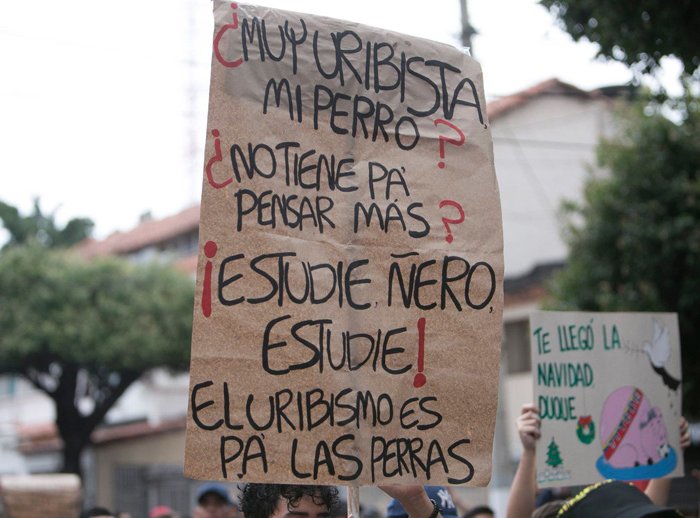 ¿MUY URIBISTA,
MI PERRO?
¿NO TIENE PÁ
PENSAR MÁS?
¡ESTUDIE, ÑERO,
ESTUDIE!
EL URIBISMO ES
PÁ LAS PERRAS
TE LLEGÓ LA
NAVIDAD,
DUQUE